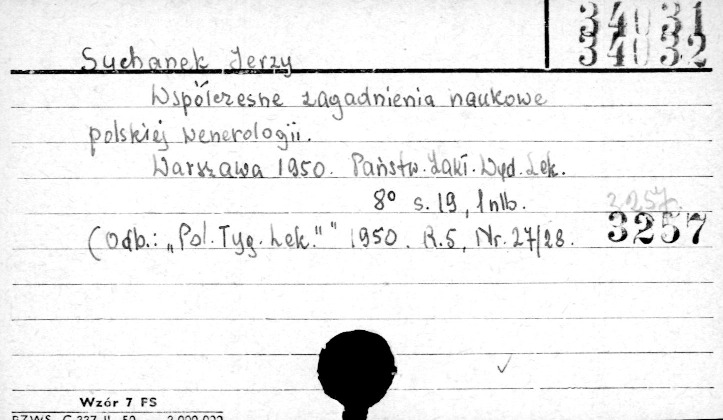 34031
34032
Suchanek Jerzy
Współczesne zagadnienia naukowe
polskiej wenerologii.
Warszawa 1950. Państw. Zakł. Wyd. Lek.
8° s. 19, 1 nlb.
3257.
3257
(Odb.: „Pol. Tyg. Lek."" 1950. R.5, Nr. 27/28.
Wzór 7 FS